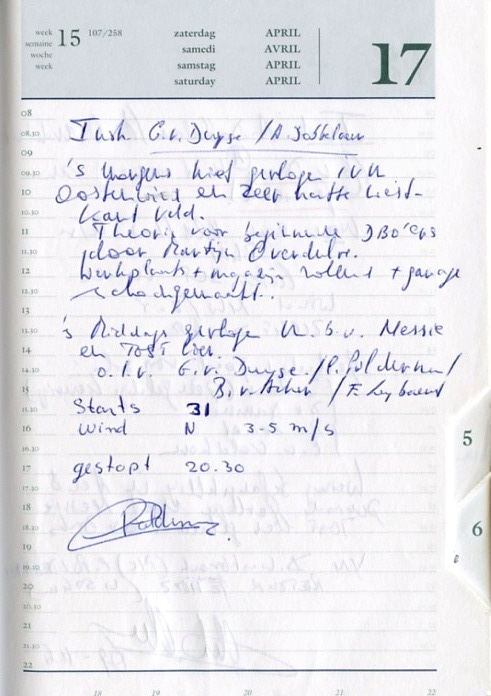 week 15 107/258 zaterdag APRIL
semaine samedi AVRIL
woche samstag APRIL
week saturday APRIL
17
08
08.30 Instr. G.v. Duyse /
09
09.30 's morgens niet gevlogen i.v.m.
10 Oostenwind en zeer natte
10.30 kant veld.
11 Theorie voor beginnende DBO'ers
11.30 door Martijn Overdulve.
12 Werkplaats + magazijn rollend + garage
12.30 schoongemaakt.
13
13.30 's Middags gevlogen
14 en Tost lier.
14.30 o.l.v. G.v. Duyse /
15 B. v. /
15.30 Starts 31
16 Wind N 3-5 m/s
16.30
17 gestopt 20.30
17.30
18
18.30
19
19.30
20
20.30
21
21.30
22
5
6
18 19 20 21 22